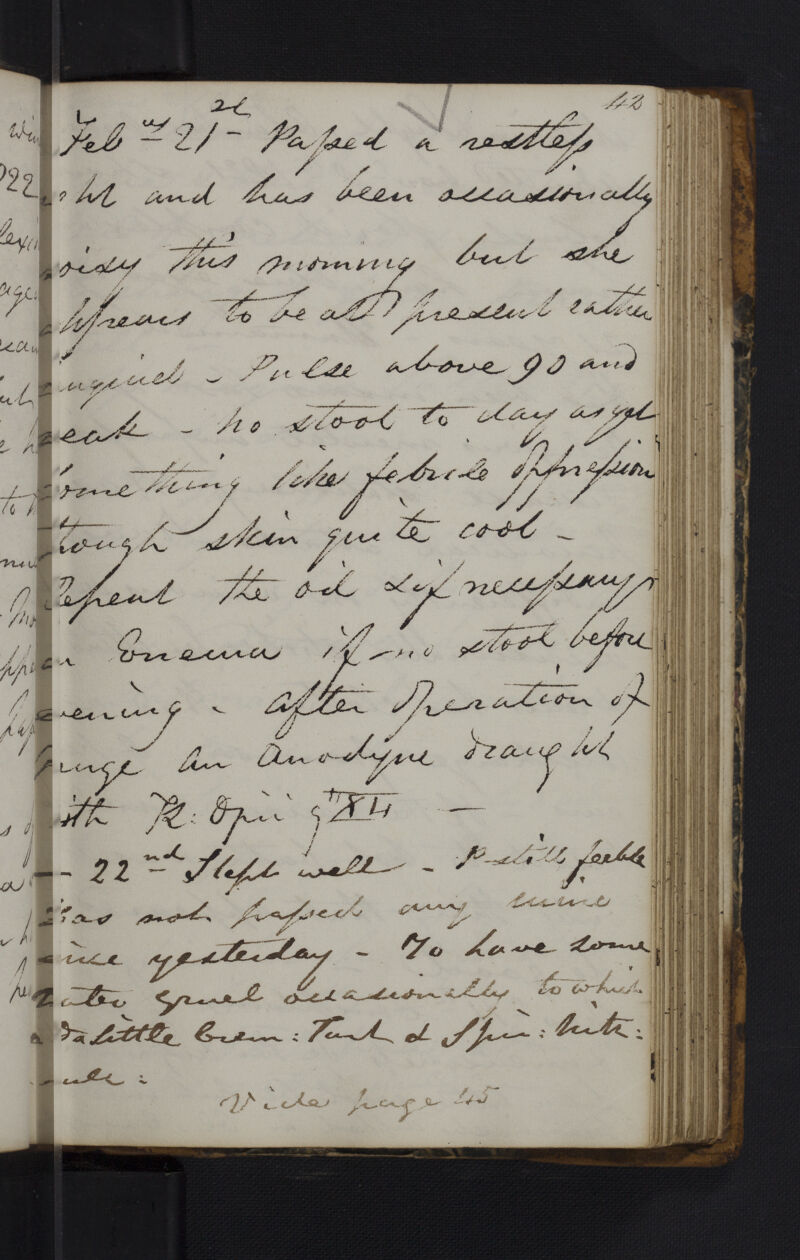 42
Feb ry 21 st Passed a restless
ght and has been occasionally
oisy this morning but she
appears to be at present rather
languid - Pulse above 90 and
weak - no stool to day as yet
Something like febrile oppression
though skin quite cool -
Repeat the oil & if necessary
an Enema if no stool before
evening - after operation of
purge an Anodyne draught
with Opii XII -
- 22 nd Slept well - P still feeble
Has not passed any urine
since yesterday - To have some
water gruel occasionally to which
add a little Crem: Tart & Spir: Nitr:
Vide page 45